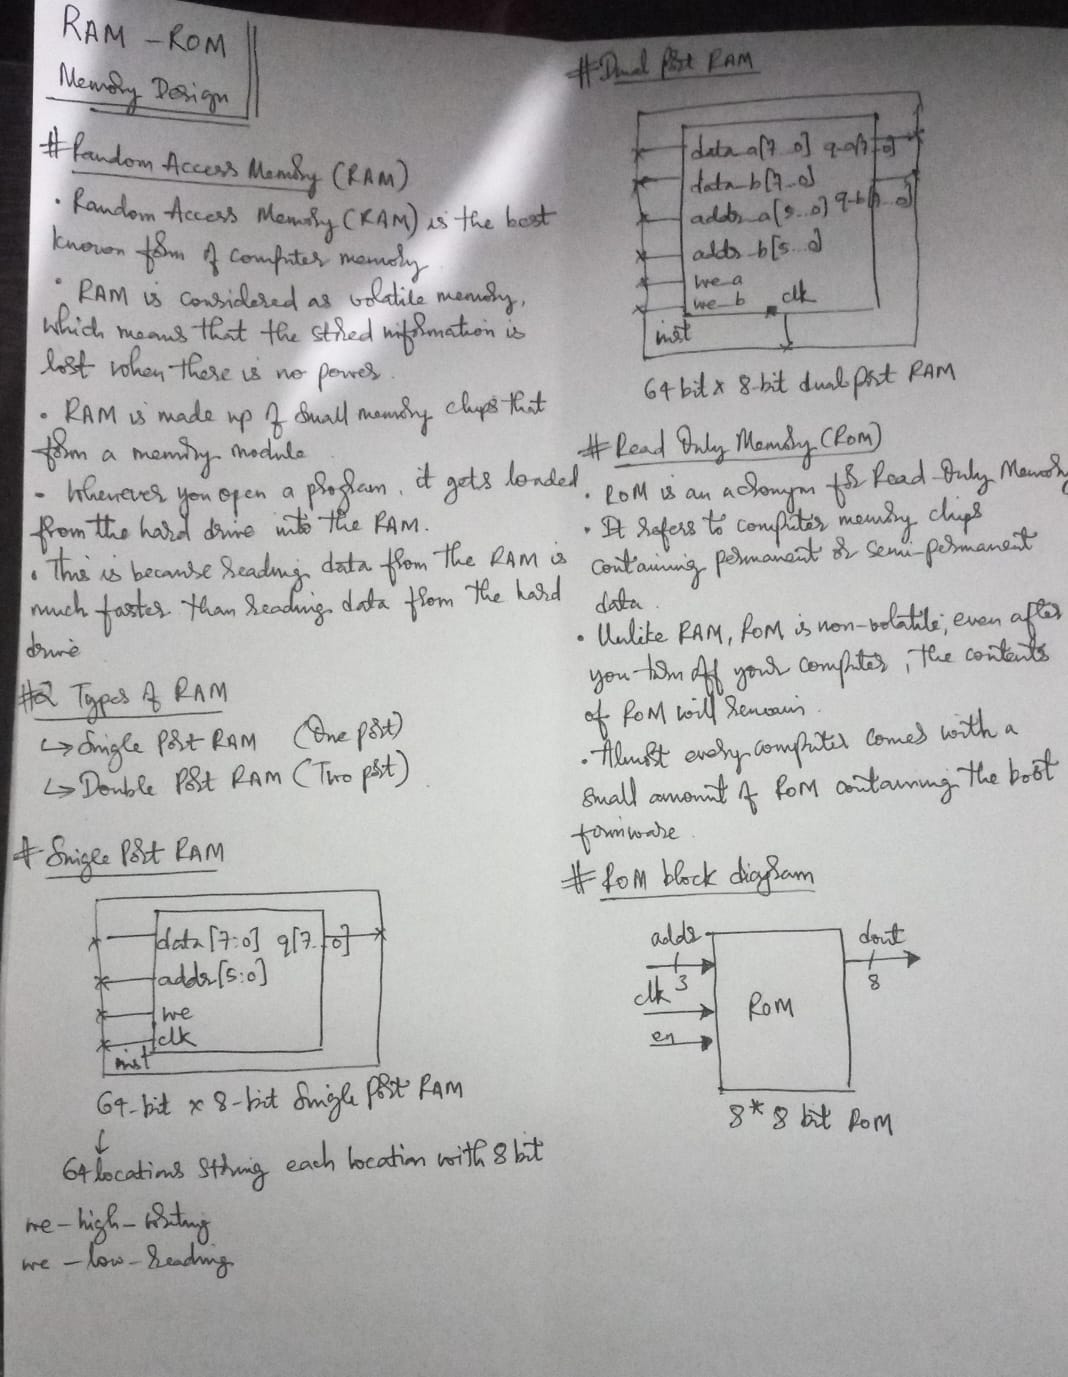 RAM - ROM
Memory Design
# Random Access Memory (RAM)
• Random Access Memory (RAM) is the best
known form of computer memory
• RAM is considered as volatile memory,
which means that the stored information is
lost when there is no power.
• RAM is made up of small memory chips that
form a memory module
• Whenever you open a program, it gets loaded
from the hard drive into the RAM.
• This is because reading data from the RAM is
much faster than reading data from the hard
drive
#2 Types of RAM
↳ Single Port RAM (One port)
↳ Double Port RAM (Two port)
# Single Port RAM
data[7:0] q[7..0]
addr[5:0]
we
clk
inst
64-bit x 8-bit Single Port RAM
↓
64 locations storing each location with 8 bit
we - high - writing
we - low - reading
# Dual Port RAM
data_a[7..0] q_a[7..0]
data_b[7..0]
addr_a[5..0] q_b[7..0]
addr_b[5..0]
we_a
we_b clk
inst
64 bit x 8-bit dual port RAM
# Read Only Memory (ROM)
• ROM is an acronym for Read-Only Memory
• It refers to computer memory chips
containing permanent or semi-permanent
data.
• Unlike RAM, ROM is non-volatile; even after
you turn off your computer, the contents
of ROM will remain.
• Almost every computer comes with a
small amount of ROM containing the boot
firmware.
# ROM block diagram
addr dout
3 8
clk ROM
en
8*8 bit ROM